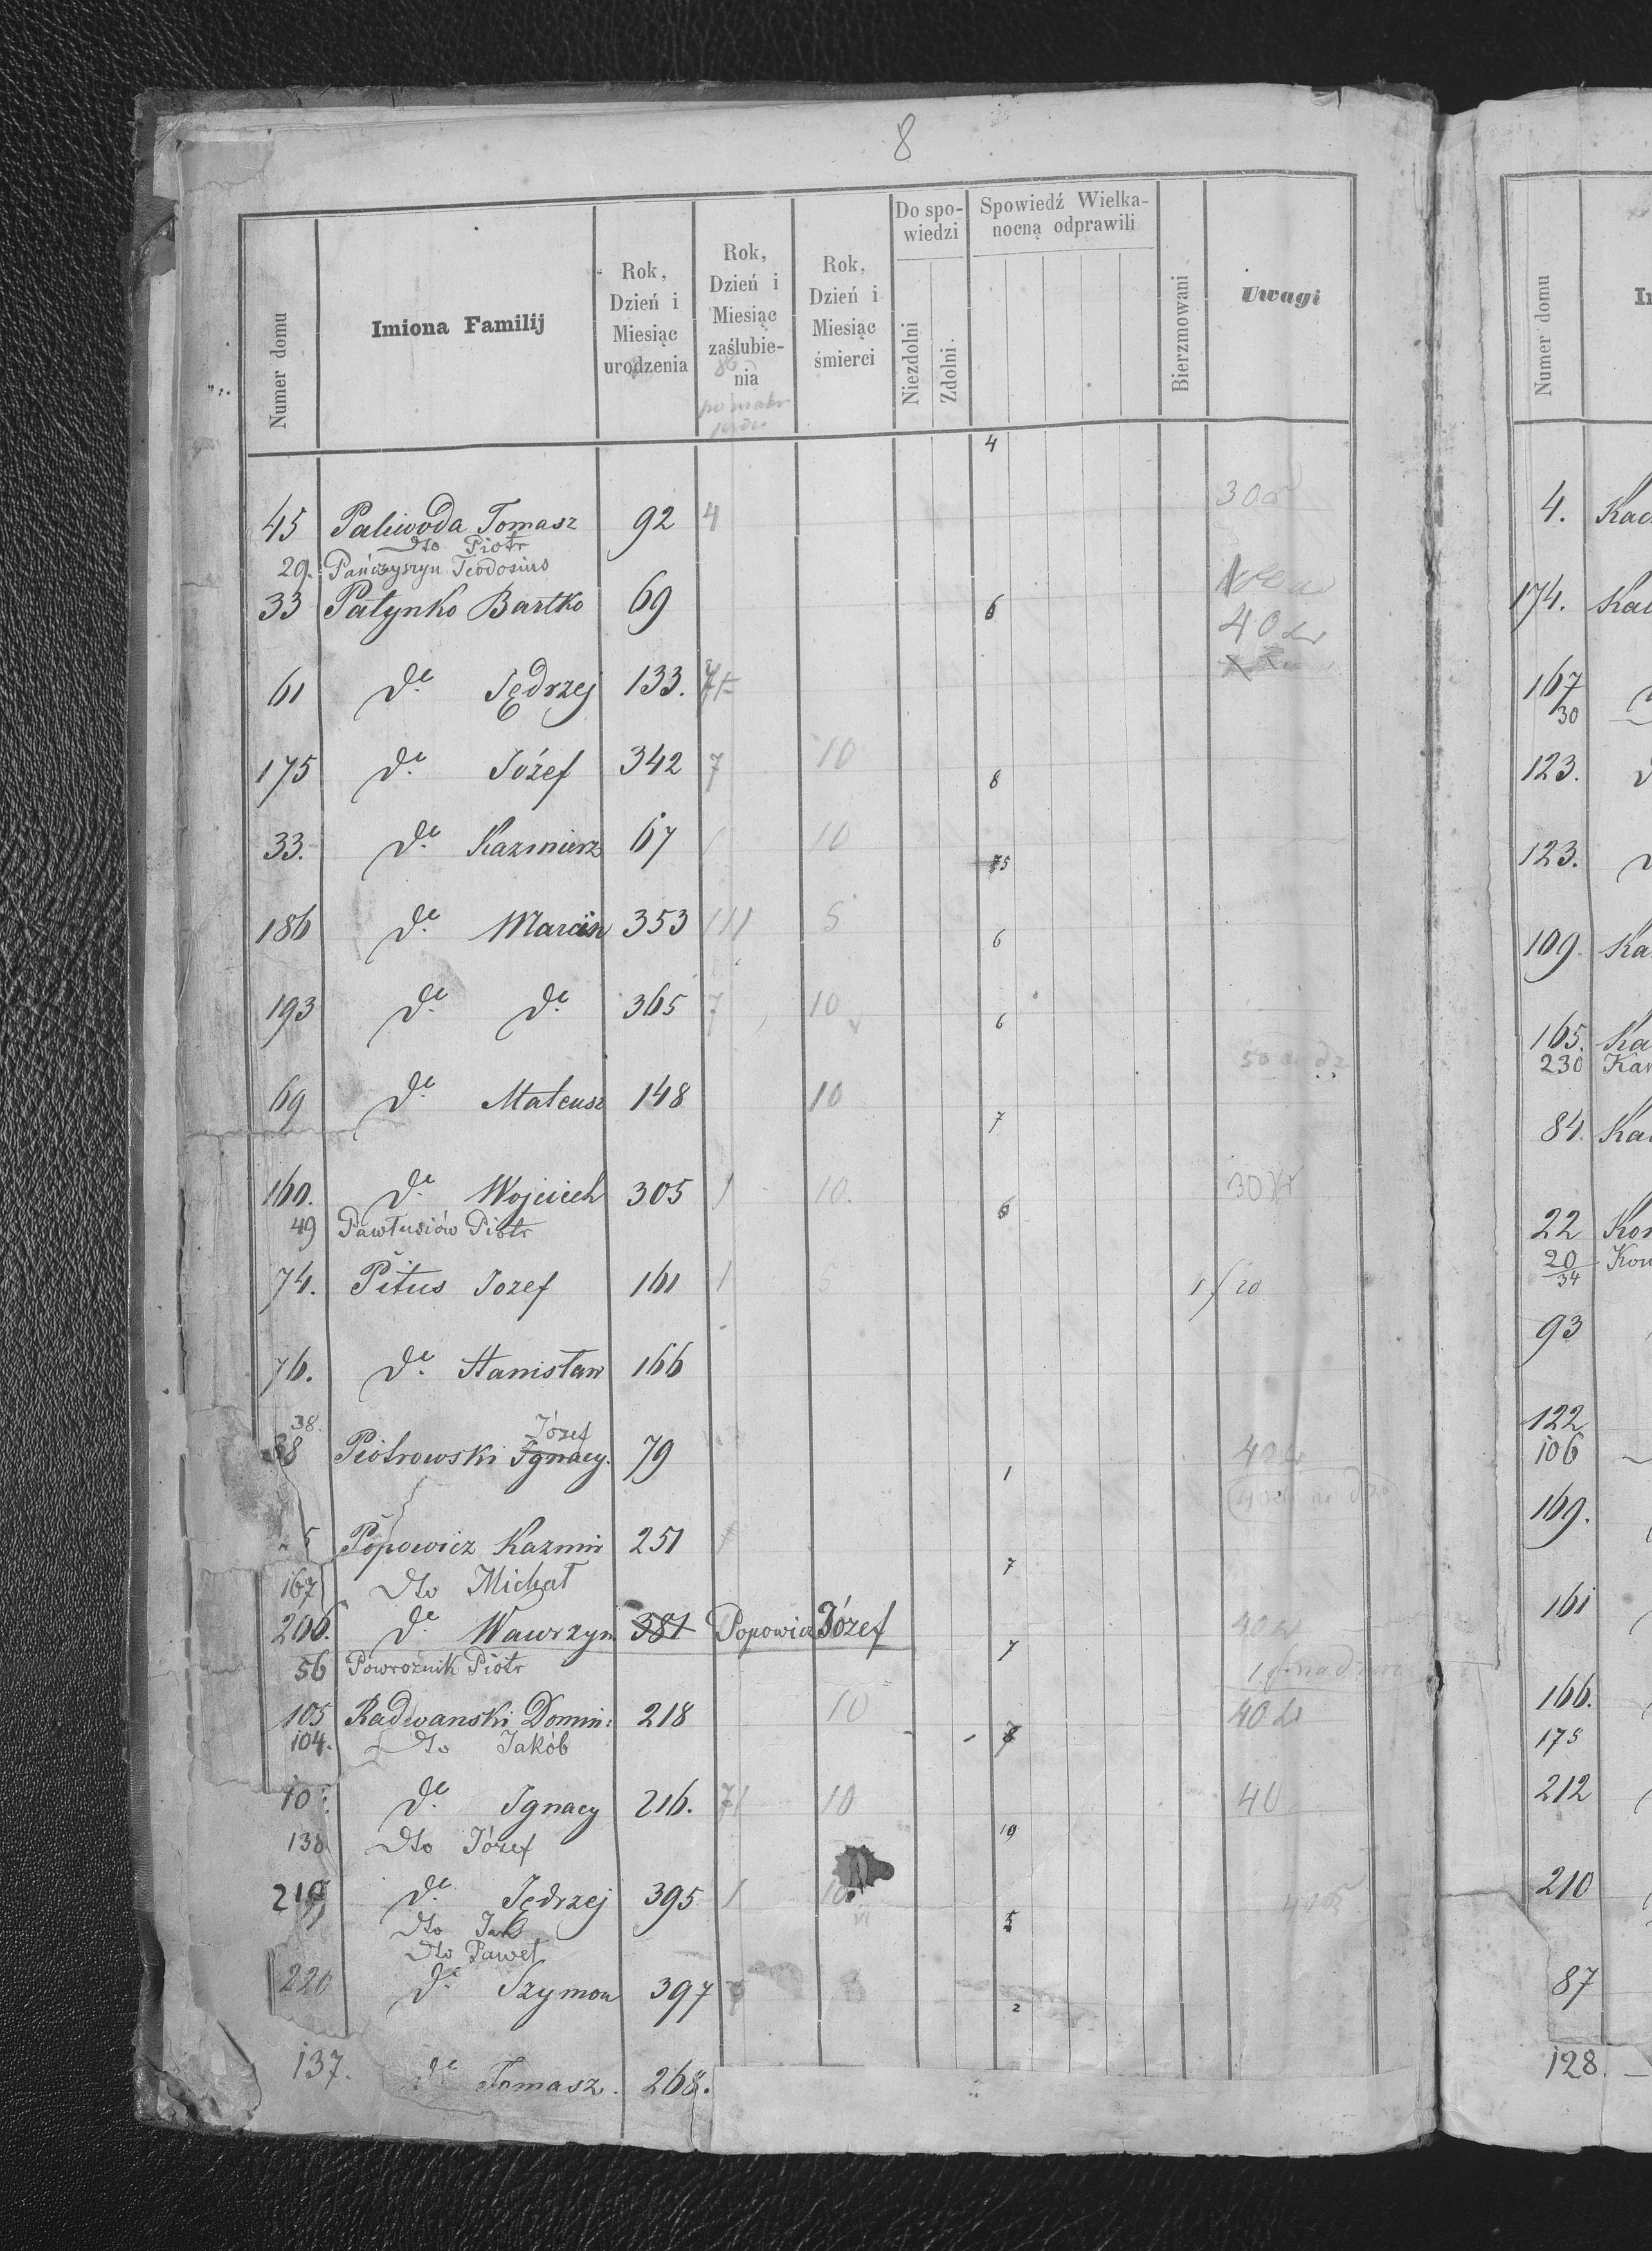 8
Numer domu | Imiona Familij | Rok, Dzień i Miesiąc urodzenia | Rok, Dzień i Miesiąc zaślubienia | Rok, Dzień i Miesiąc śmierci | Do spowiedzi | Niezdolni | Zdolni. | Spowiedź Wielkanocną odprawili | Bierzmowani | Uwagi
4
45 Paliwoda Tomasz 92 4
dto Piotr
29. Pańczyszyn Teodosius
33 Patynko Bartko 69 6 40
61 dᵉ Jędrzej 133.
175 dᵉ Józef 342 7 10 8
33. dᵉ Kazmierz 67 10
186 dᵉ Marcin 353 111 5 6
193 dᵉ dᵉ 365 7 10 6
69 dᵉ Mateusz 148 10 7
160. dᵉ Wojciech 305 1 10. 6 30
49 Pawłusiów Piotr
74. Pitus Jozef 161 1 5 1 f 20
76. dᵉ Stanisław 166
38. Józef
38 Piotrowski Ignacy. 79 1 40
5 Popowicz Kazmir 251 7
167 dto Michał
206. dᵉ Wawrzyn 381 Popowicz Józef 7 40
56 Powroznik Piotr
105 Radwanski Domin: 218 10 40
104. dto Jakób
10 dᵉ Ignacy 216. 71 10 40
138 dto Józef 19
219 dᵉ Jędrzej 395 1 10 5
dto
dto Paweł
220 dᵉ Szymon 397 2
137. dᵉ Tomasz. 268.
Numer domu
4.
174.
167
30
123.
123.
109
165.
230
84.
22
20
34
93
122
106
169.
161
166.
175
212
210
87
128.